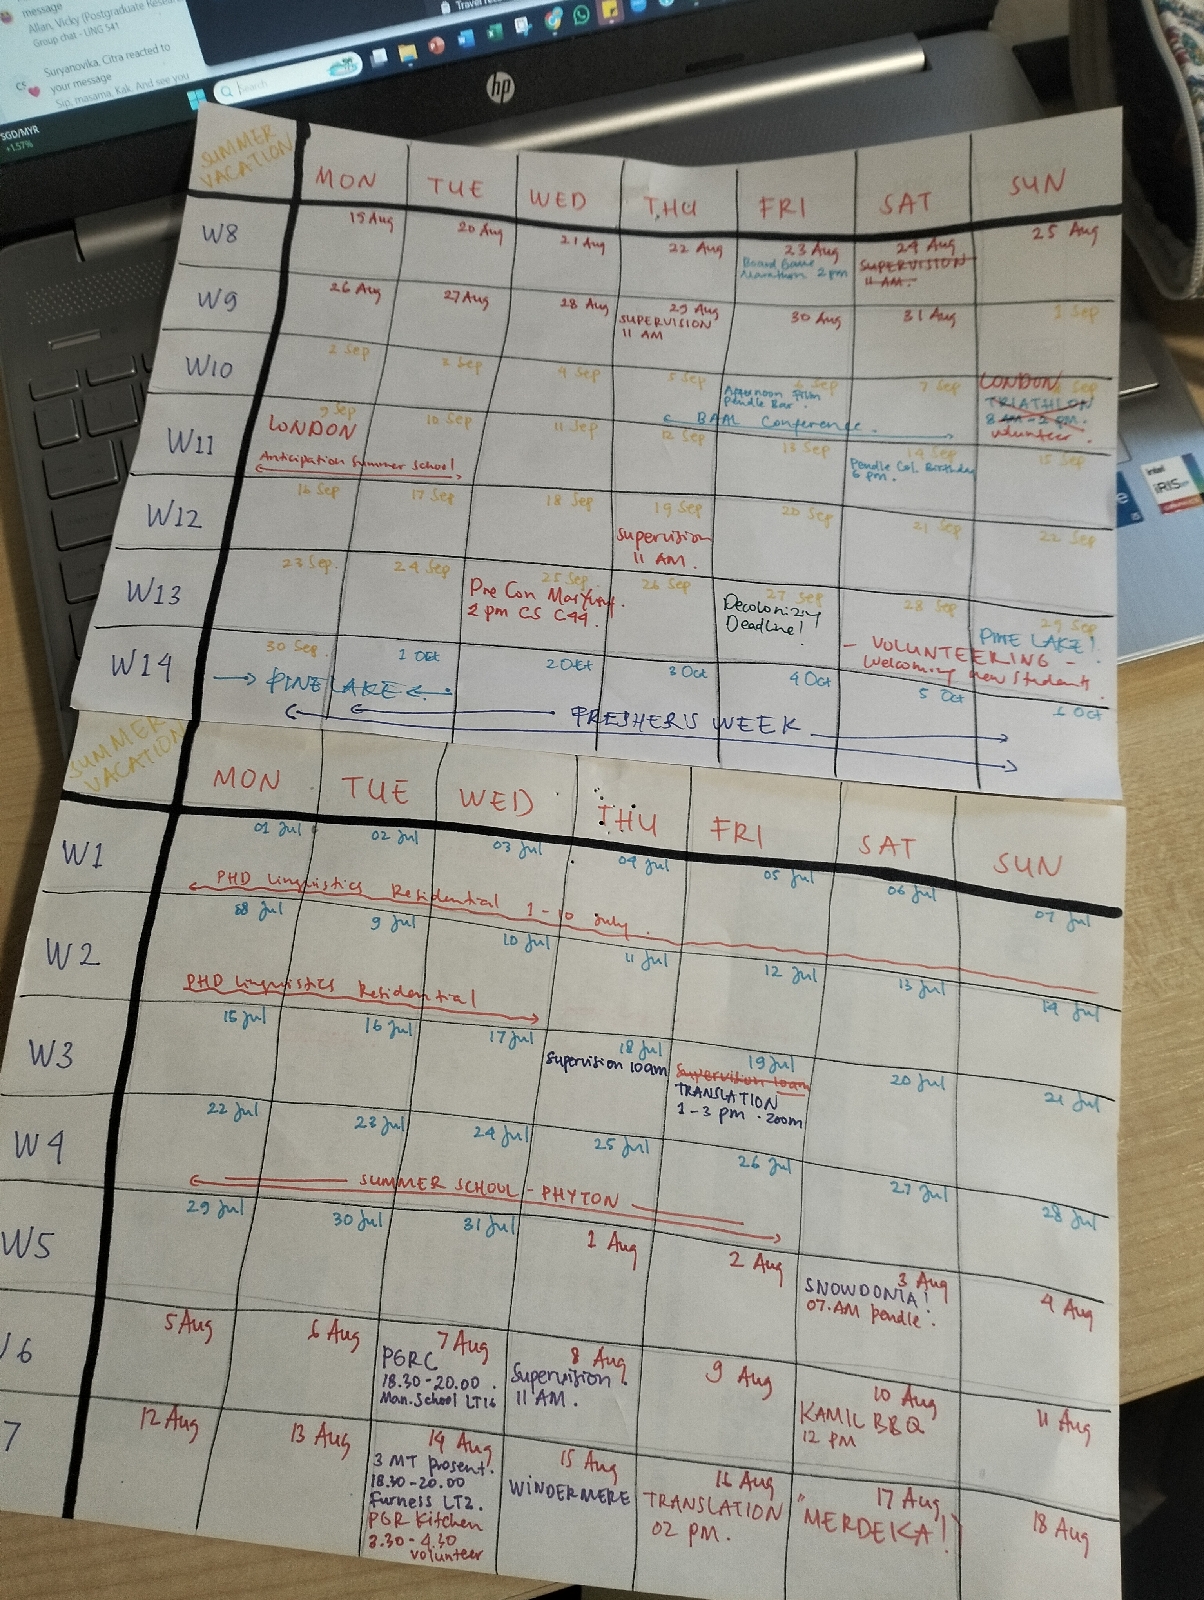 message
Allan, Vicky (Postgraduate Resear
Group chat - LING 541
CS
Suryanovika, Citra reacted to
your message
Sip, masama, Kak. And see you
SGD/MYR
+1.57%
Search
hp
intel
IRIS
SUMMER
VACATION
MON TUE WED THU FRI SAT SUN
W8
19 Aug 20 Aug 21 Aug 22 Aug 23 Aug 24 Aug 25 Aug
Board Game
Marathon 2 pm
SUPERVISION
11 AM.
W9
26 Aug 27 Aug 28 Aug 29 Aug 30 Aug 31 Aug 1 Sep
SUPERVISION
11 AM
W10
2 Sep 3 Sep 4 Sep 5 Sep 6 Sep 7 Sep 8 Sep
Afternoon Film
Pendle Bar.
BAAL Conference.
LONDON
TRIATHLON
8 AM - 2 PM.
volunteer.
W11
9 Sep 10 Sep 11 Sep 12 Sep 13 Sep 14 Sep 15 Sep
LONDON
Anticipation Summer School
Pendle Col. Birthday
6 pm.
W12
16 Sep 17 Sep 18 Sep 19 Sep 20 Sep 21 Sep 22 Sep
Supervision
11 AM.
W13
23 Sep. 24 Sep 25 Sep 26 Sep 27 Sep 28 Sep 29 Sep
Pre Con
2 pm CS C44.
Decolonizing
Deadline!
- VOLUNTEERING -
Welcoming new students
PINE LAKE!
W14
30 Sep 1 Oct 2 Oct 3 Oct 4 Oct 5 Oct 6 Oct
→ PINE LAKE ←
FRESHER'S WEEK
SUMMER
VACATION
MON TUE WED THU FRI SAT SUN
W1
01 Jul 02 Jul 03 Jul 04 Jul 05 Jul 06 Jul 07 Jul
PHD Linguistics Residential 1 - 10 July.
W2
08 Jul 9 Jul 10 Jul 11 Jul 12 Jul 13 Jul 14 Jul
PHD Linguistics Residential
W3
15 Jul 16 Jul 17 Jul 18 Jul 19 Jul 20 Jul 21 Jul
Supervision 10am
Supervision 10am
TRANSLATION
1 - 3 pm · Zoom
W4
22 Jul 23 Jul 24 Jul 25 Jul 26 Jul 27 Jul 28 Jul
SUMMER SCHOOL - PHYTON
W5
29 Jul 30 Jul 31 Jul 1 Aug 2 Aug 3 Aug 4 Aug
SNOWDONIA!
07.AM Pendle.
6
5 Aug 6 Aug 7 Aug 8 Aug 9 Aug 10 Aug 11 Aug
PGRC
18.30 - 20.00.
Man. School LT16
Supervision.
11 AM.
KAMIL BBQ
12 PM
7
12 Aug 13 Aug 14 Aug 15 Aug 16 Aug 17 Aug 18 Aug
3 MT present.
18.30 - 20.00
Furness LT2.
PGR Kitchen
3.30 - 4.30
volunteer
WINDERMERE
TRANSLATION
02 PM.
"MERDEKA!"